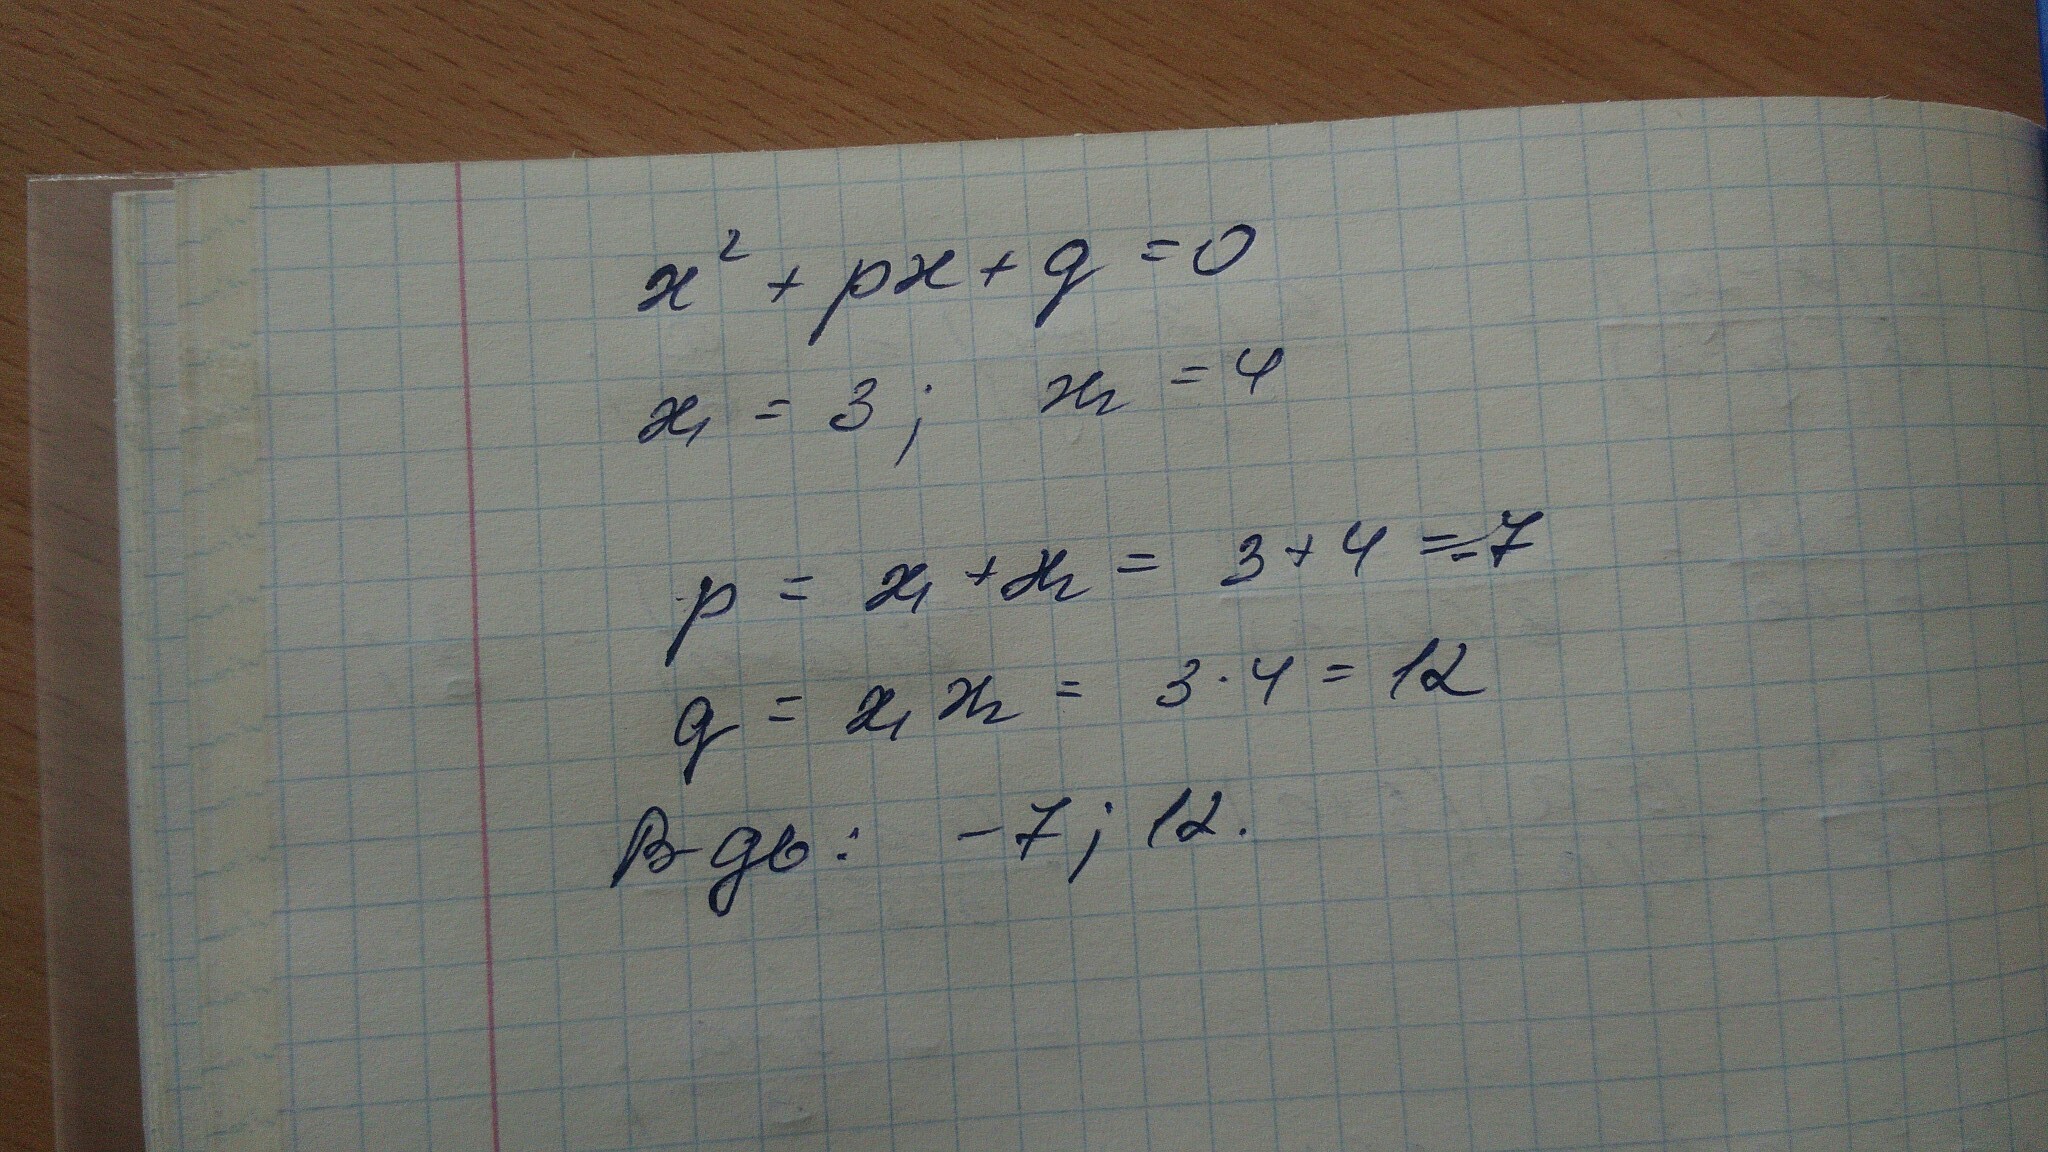 x² + px + q = 0
x₁ = 3; x₂ = 4
p = x₁ + x₂ = 3 + 4 = -7
q = x₁ x₂ = 3 · 4 = 12
В-дь: -7; 12.